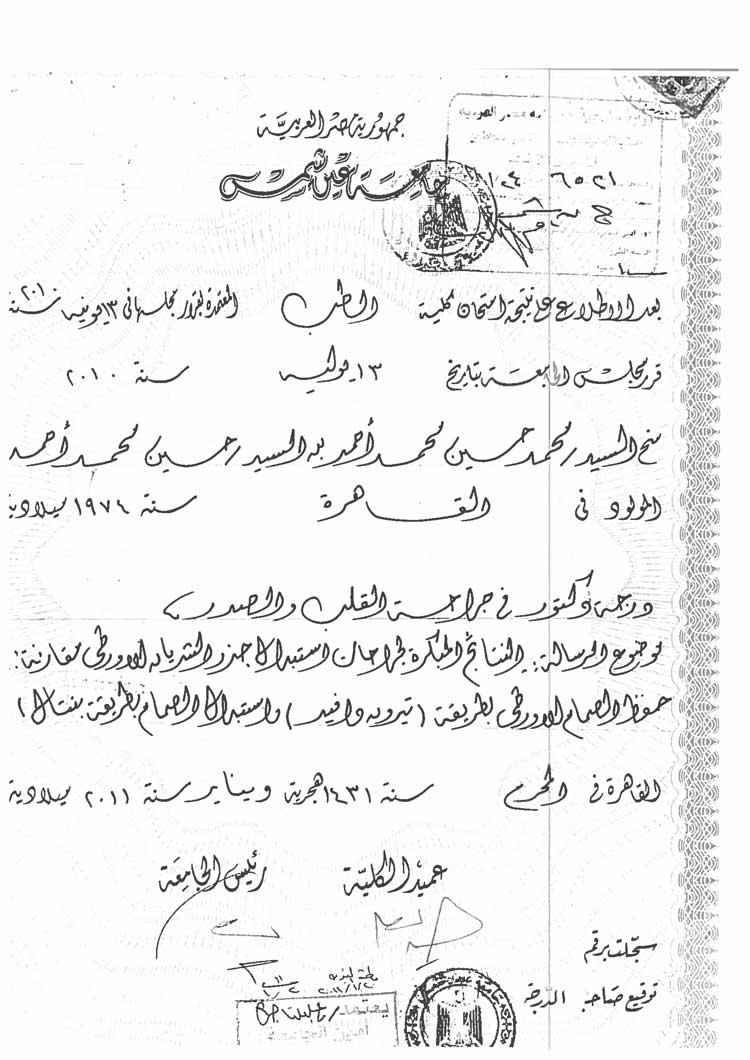 جمهورية مصر العربية
جامعة عين شمس
٦٥٢١
بعد الاطلاع على نتيجة امتحان كلية الطب المعتمدة بقرار مجلسها فى ١٣ يونيه سنة ٢٠١٠
قرر مجلس الجامعة بتاريخ ١٣ يوليه سنة ٢٠١٠
منح السيد / محمد حسين محمد أحمد بن السيد / حسين محمد أحمد
المولود فى القاهرة سنة ١٩٧٤ ميلادية
درجة دكتور فى جراحة القلب والصدر
موضوع الرسالة: النتائج المبكرة لجراحات استبدال جذر الشريان الاورطى مقارنة:
حفظ الصمام الاورطى بطريقة (تيرون دافيد) واستبدال الصمام بطريقة بنتال)
القاهرة فى المحرم سنة ١٤٣١ هجرية ويناير سنة ٢٠١١ ميلادية
عميد الكلية رئيس الجامعة
سجلت برقم
توقيع صاحب الدرجة
يعتمد